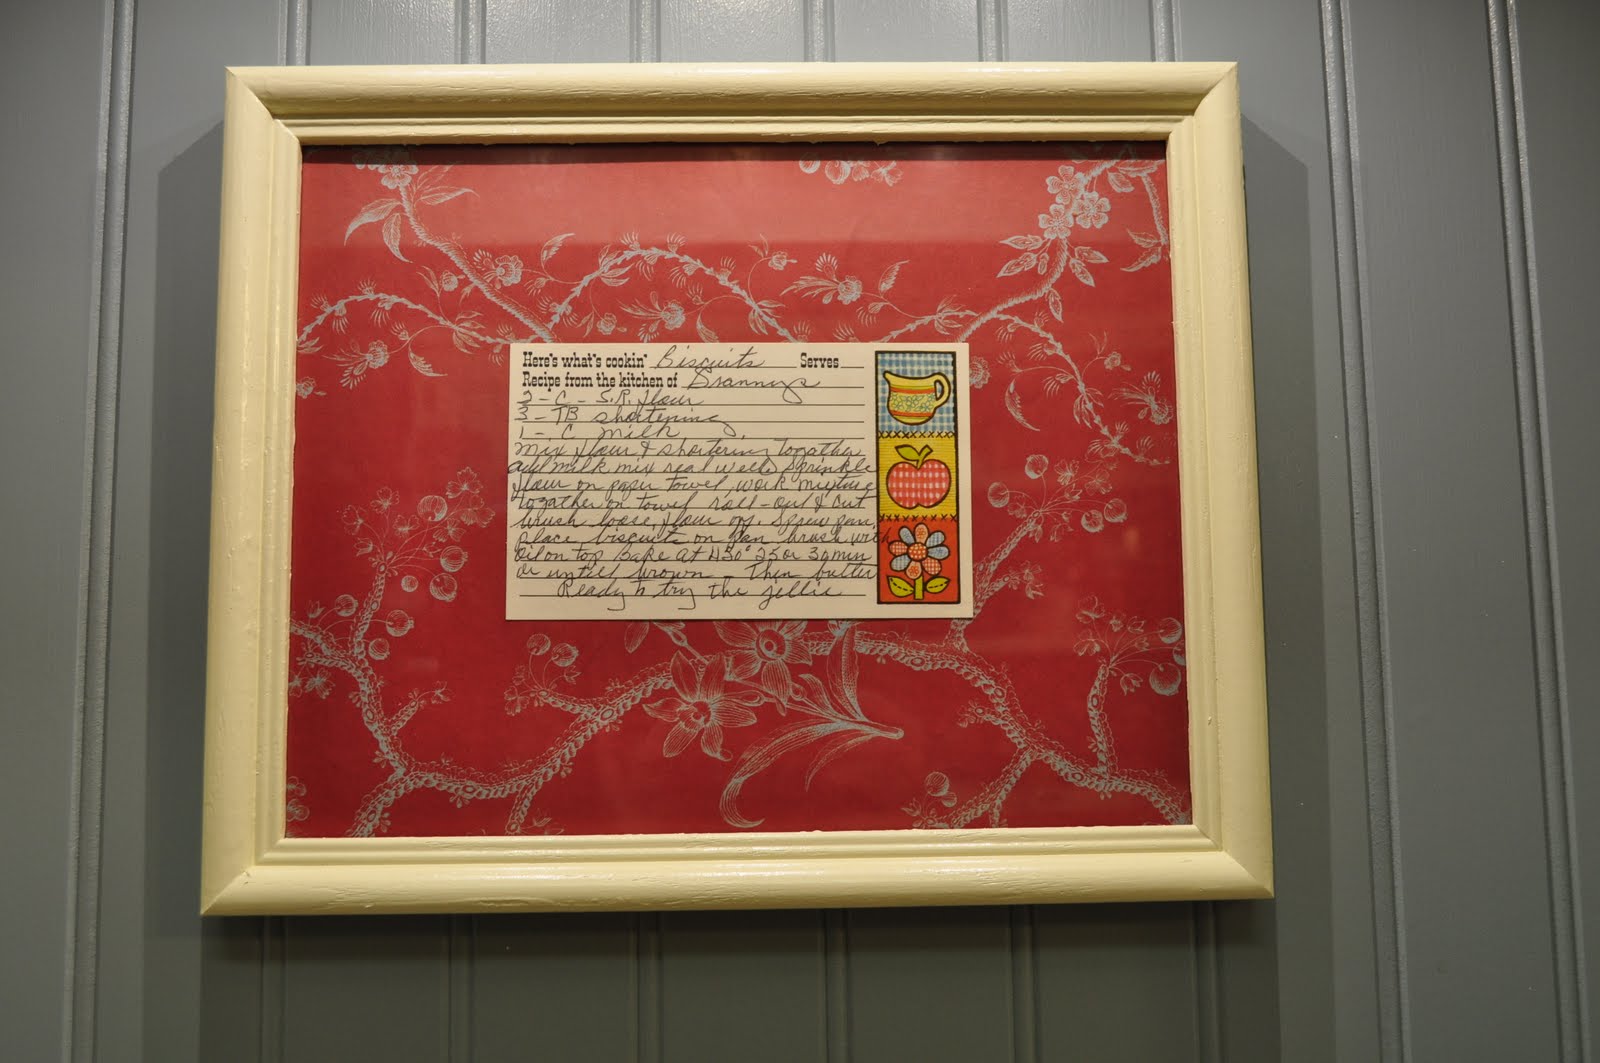 Here's what's cookin' Biscuits Serves
Recipe from the kitchen of Grannys
2 - C - S.R. flour
3 - TB shortening
1 - C milk
mix flour & shortening together
add milk mix real well. Sprinkle
flour on paper towel, work mixture
together on towel roll-out & cut
brush loose flour off. Spray pan,
place biscuits on pan brush with
oil on top Bake at 450° 25 or 30 min
or untill brown. Then butter
Ready to try the jellie